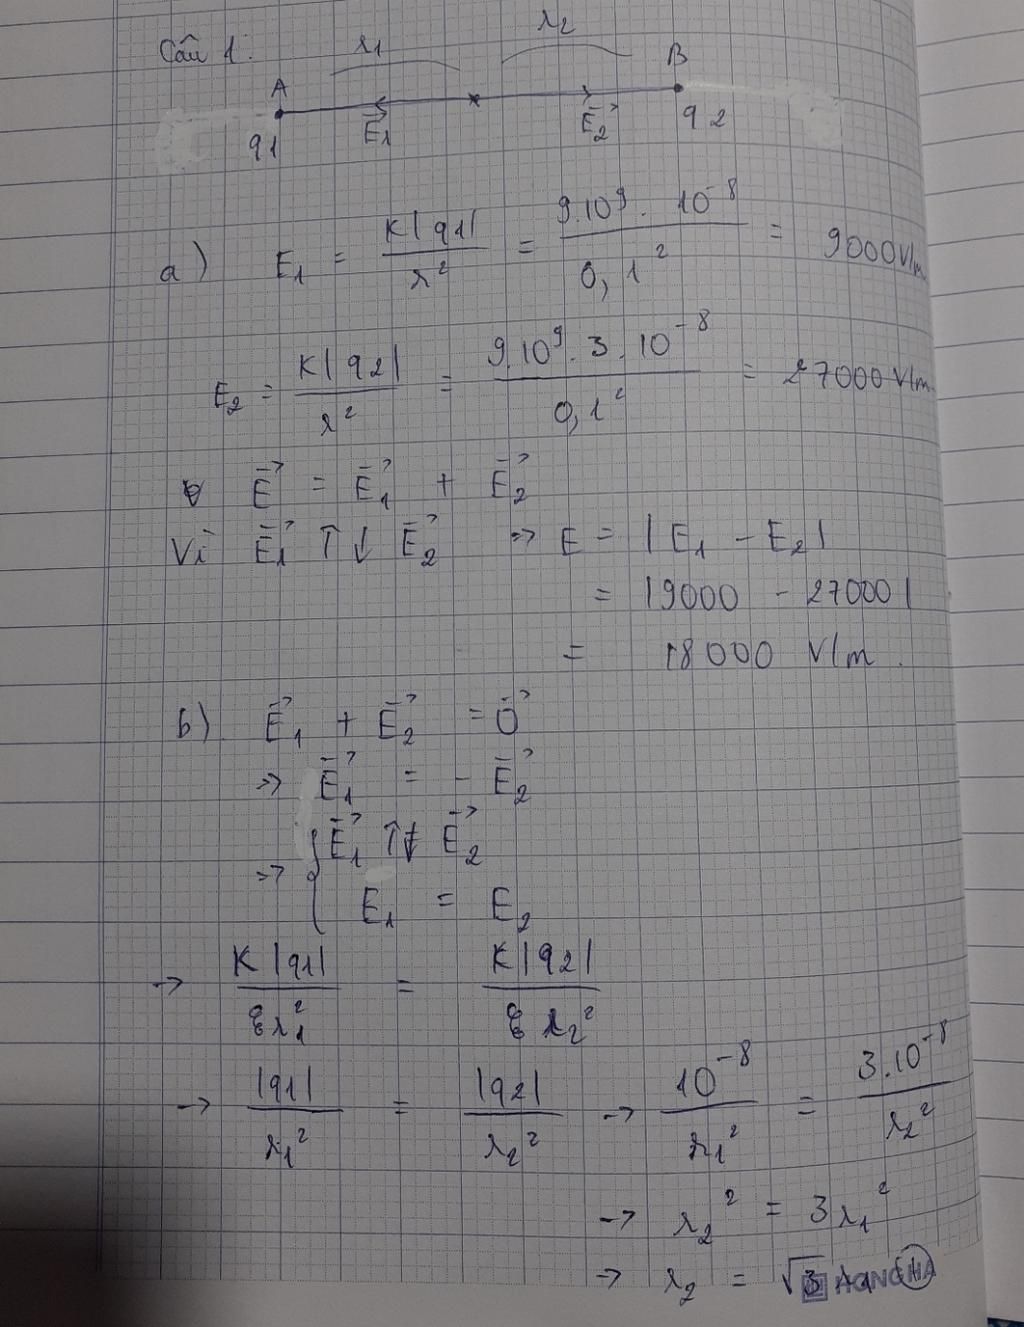 Câu 1:
r1 r2
A B
q1 E⃗1 E⃗2 q2
a) E1 = K|q1| / r² = 9.10⁹ . 10⁻⁸ / 0,1² = 9000 V/m
E2 = K|q2| / r² = 9.10⁹ . 3 . 10⁻⁸ / 0,1² = 27000 V/m
E⃗ = E⃗1 + E⃗2
Vì E⃗1 ↑↓ E⃗2 => E = |E1 - E2|
= |9000 - 27000|
= 18000 V/m.
b) E⃗1 + E⃗2 = 0⃗
=> E⃗1 = - E⃗2
=> { E⃗1 ↑↓ E⃗2
E1 = E2
-> K|q1| / εr1² = K|q2| / εr2²
-> |q1| / r1² = |q2| / r2² -> 10⁻⁸ / r1² = 3.10⁻⁸ / r2²
-> r2² = 3r1²
-> r2 = √3 r1 (1)